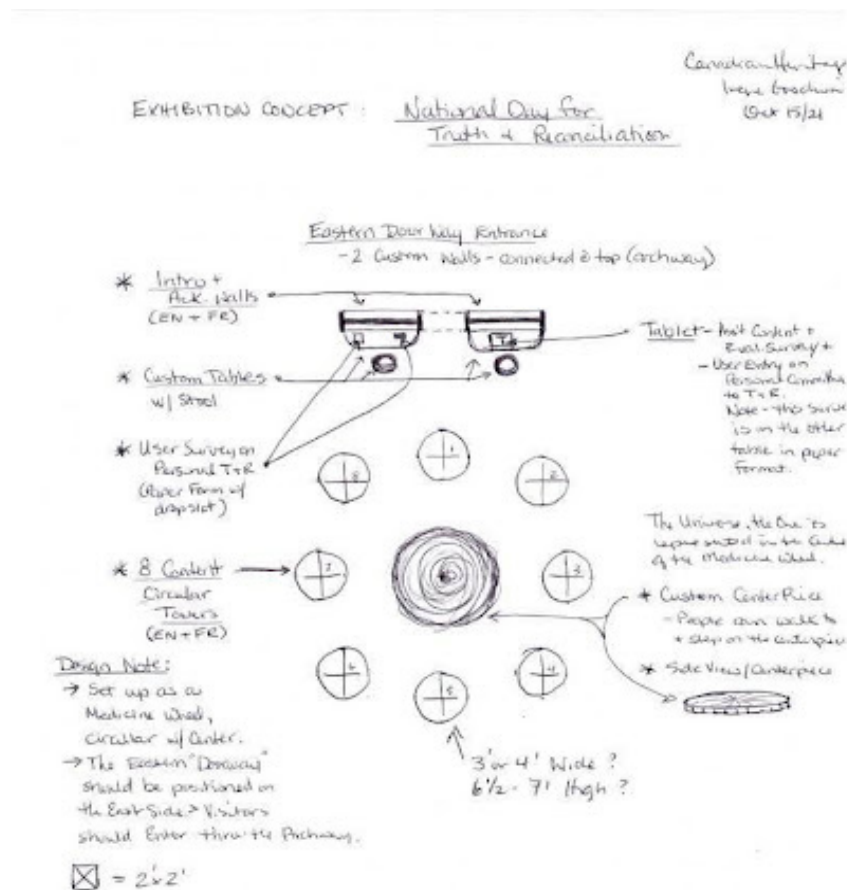 Canadian Heritage
Oct 15/21
EXHIBITION CONCEPT: National Day for
Truth + Reconciliation
Eastern Door Way Entrance
- 2 Custom Walls - connected @ top (archway)
* Intro +
Ack. Walls
(EN + FR)
* Custom Tables
w/ Stool
* User Survey on
Personal T+R
(Paper Form w/
dropslot)
Tablet - Content +
Eval. Survey +
- User Entry on
Personal
to T+R.
Note - this
is on the other
table in paper
format.
1
2
3
4
5
6
7
8
* 8 Content
Circular
Towers
(EN + FR)
The Universe, the One is
represented in the Center
of the Medicine Wheel.
* Custom CenterPiece
- People can walk to
+ step on the centerpiece
* Side View/Centerpiece
Design Note:
→ Set up as a
Medicine Wheel,
circular w/ Center.
→ The Eastern "Doorway"
should be positioned on
the East Side > Visitors
should Enter thru the Archway.
3' or 4' Wide?
6 1/2 - 7' High?
= 2'x2'